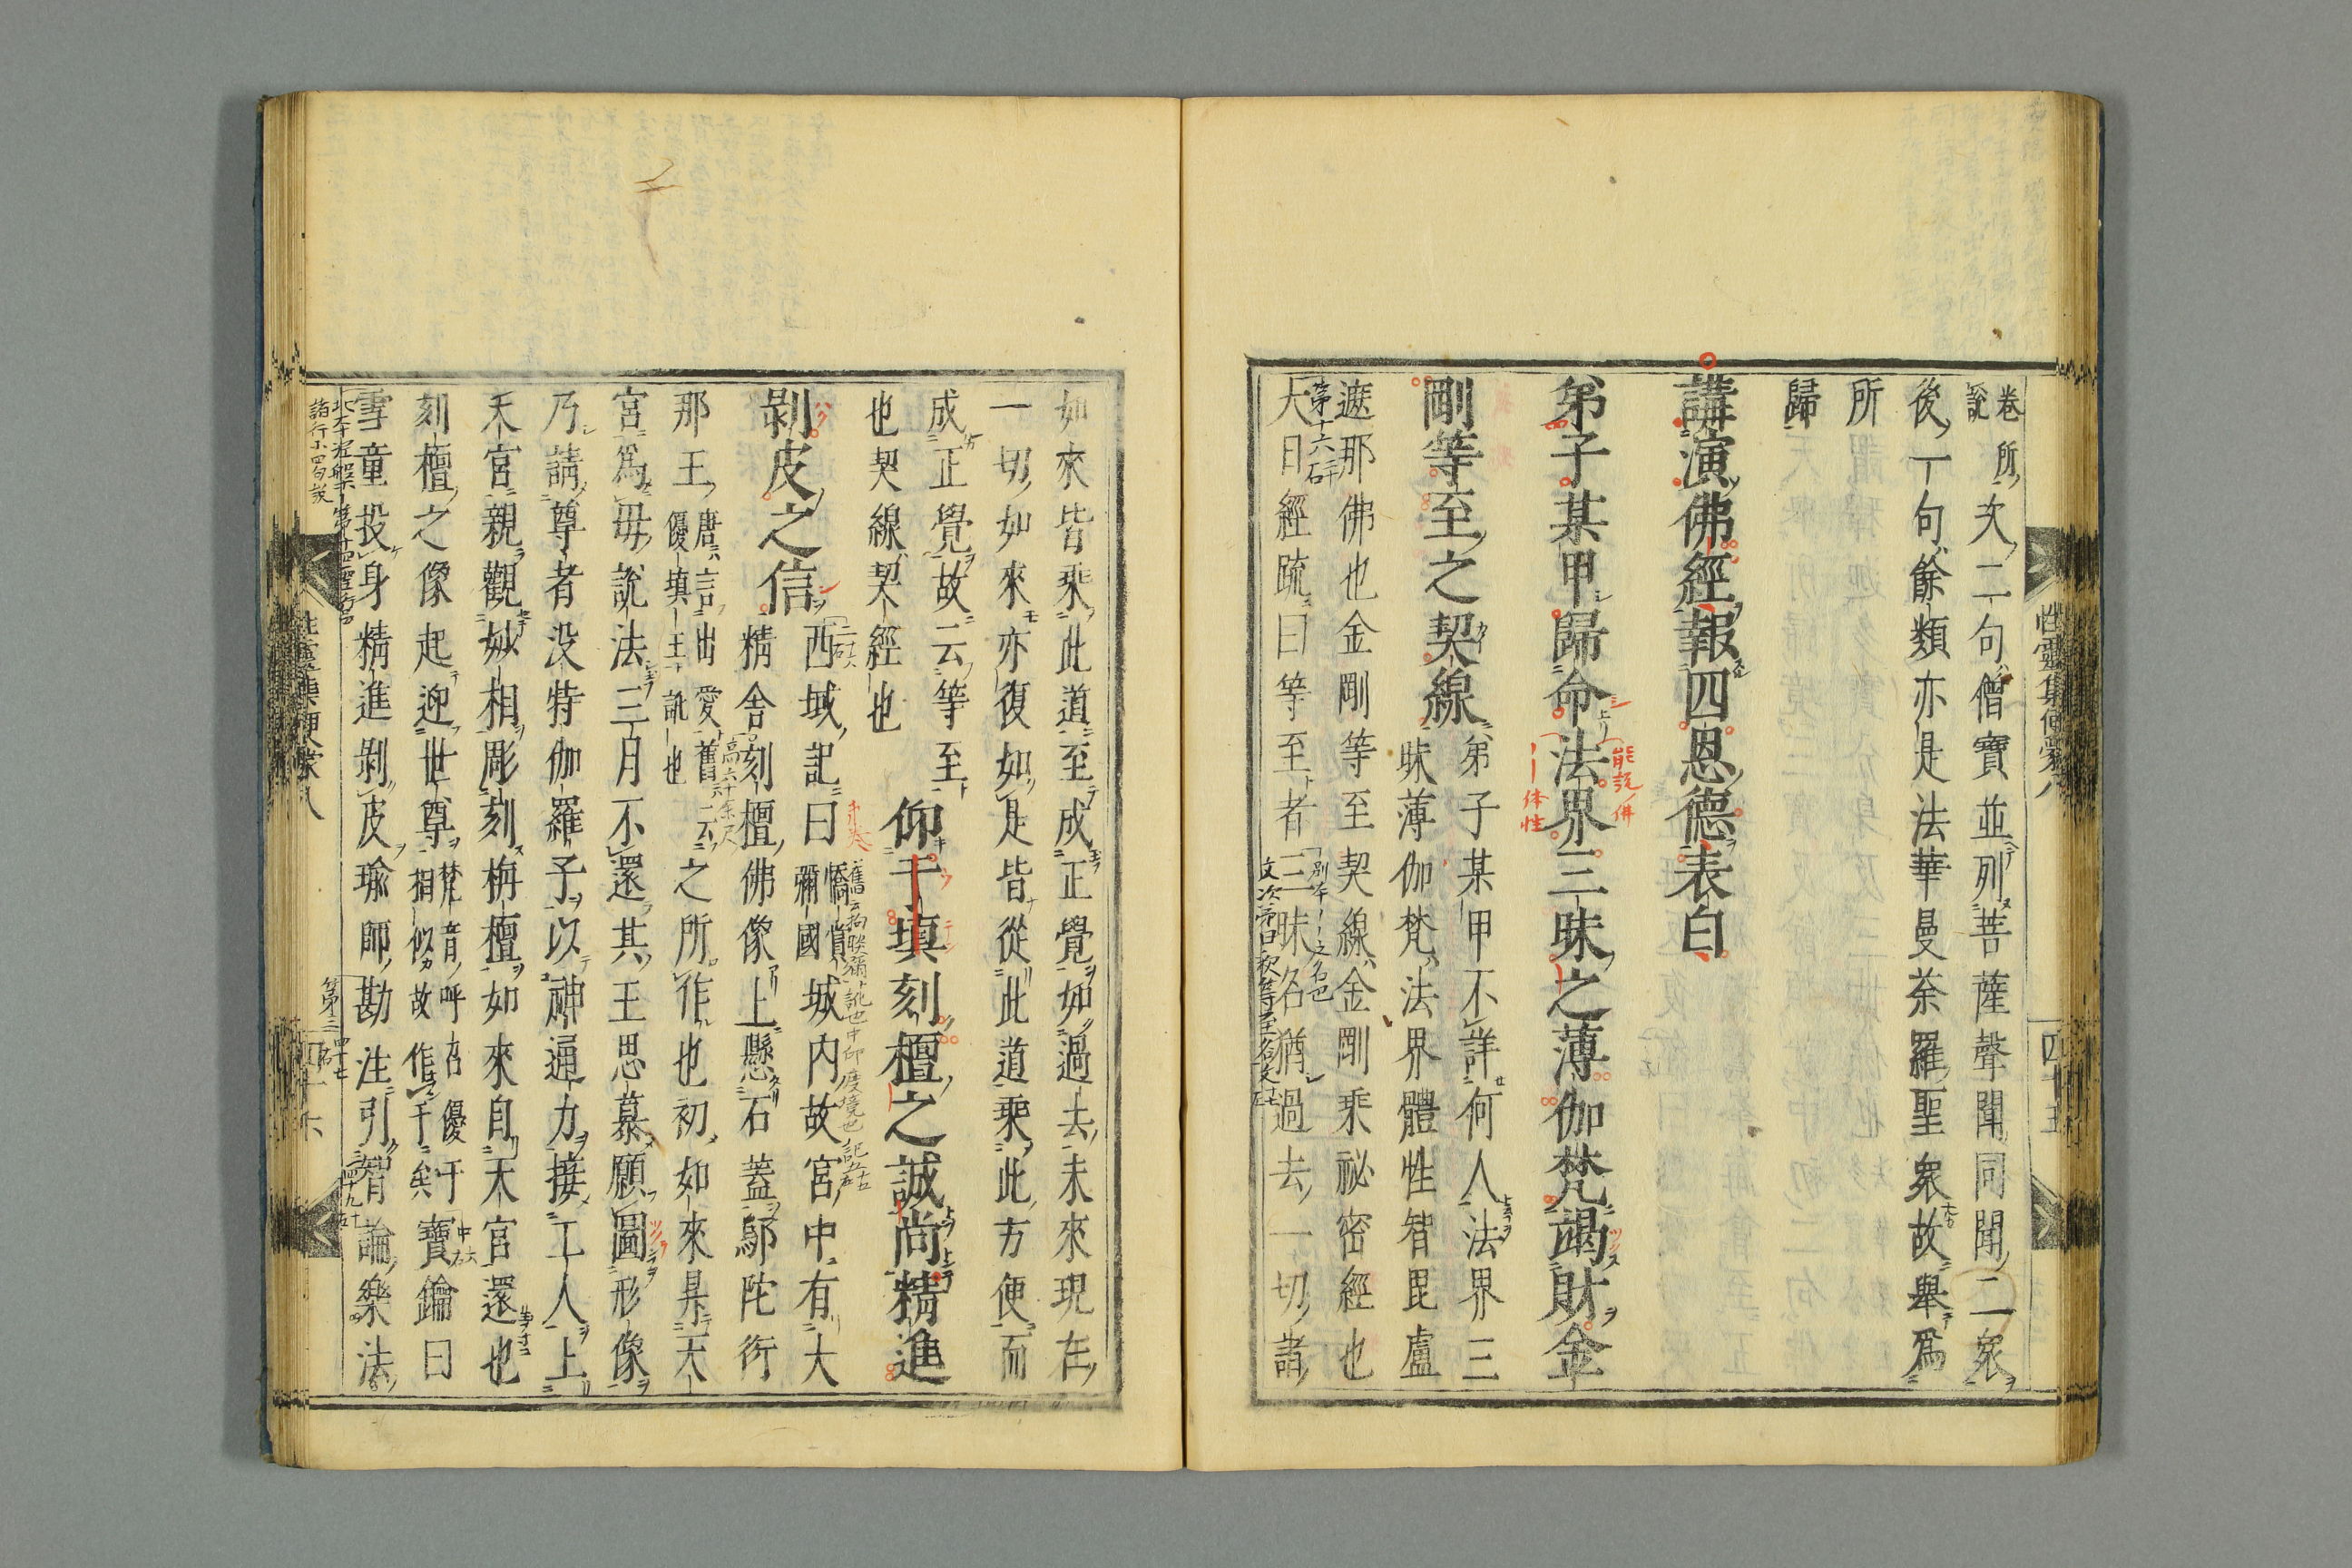 性靈集便蒙八
四十五
卷所
說
次二句僧寶並列菩薩聲聞同聞二衆
後一句餘類亦是法華曼荼羅聖衆故擧爲
所
歸
講演佛經報四恩德表白
弟子某甲歸命法界三昧之薄伽梵竭財金
能説佛
体性
剛等至之契線
弟子某甲不詳何人法界三
昧薄伽梵法界體性智毘盧
遮那佛也金剛等至契線金剛乘祕密經也
第十六
大日經疏曰等至者三昧名猶過去一切諸
如來皆乘此道至成正覺如過去未來現在
一切如來亦復如是皆從此道乘此方便而
成正覺故云等至
也契線契經也
仰于塡刻檀之誠尚精進
剝皮之信
西域記曰
憍賞
彌國
城內故宮中有大
精舍刻檀佛像上懸石蓋鄔陀衍
那王
唐言出愛舊云
優塡王訛也
之所作也初如來昇天
宮爲母說法三月不還其王思慕願圖形像
乃請尊者没特伽羅子以神通力接工人上
天宮親觀妙相彫刻栴檀如來自天宮還也
刻檀之像起迎世尊
梵音呼召優于
相似故作于矣
寶鑰曰
雪童投身精進剝皮瑜師勘注引智論樂法
四十六